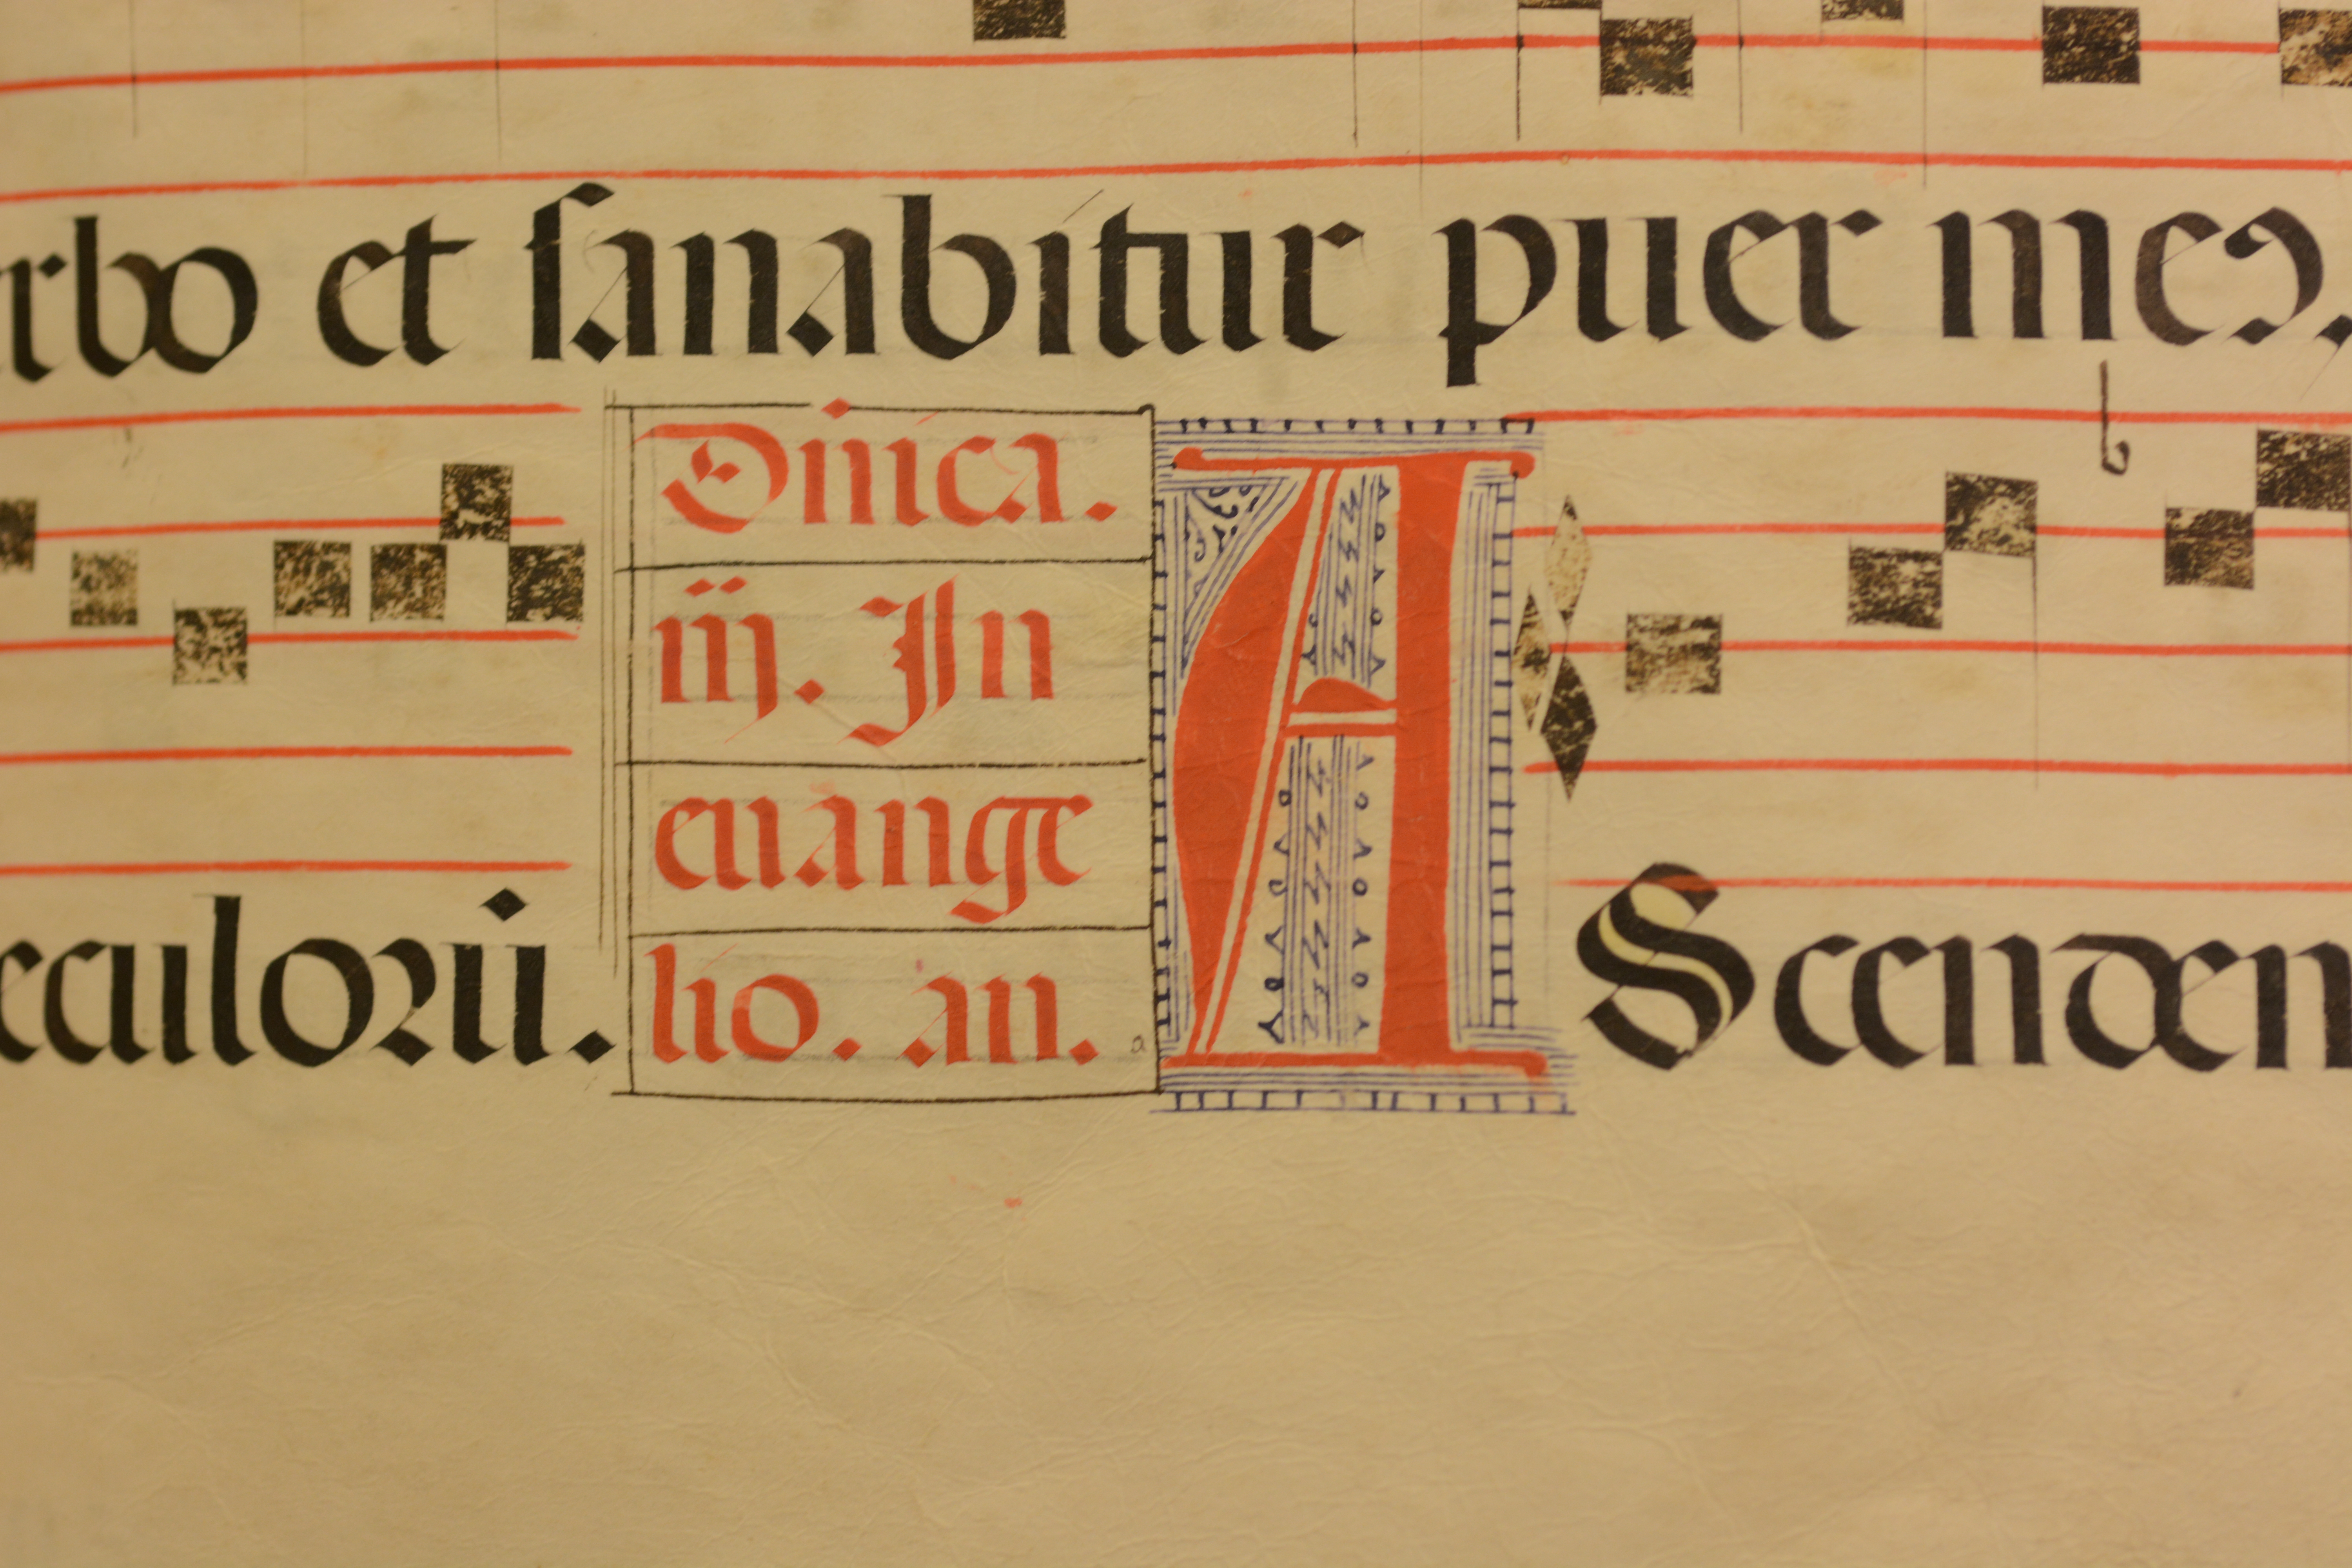 rbo et sanabitur puer meꝰ,
Dñica.
iiij. In
euange
lio. an.
eculorū. A Scenden